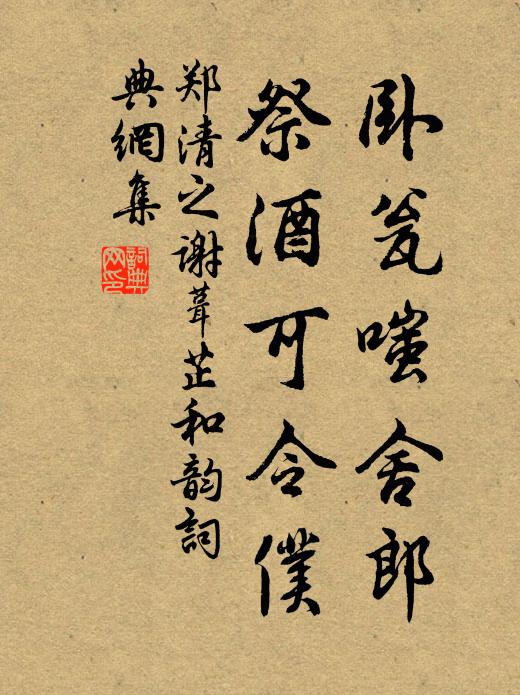 卧瓮嗤舍郎
祭酒可令僕
郑清之谢葺芷和韵詞
典網集
詞典
网印